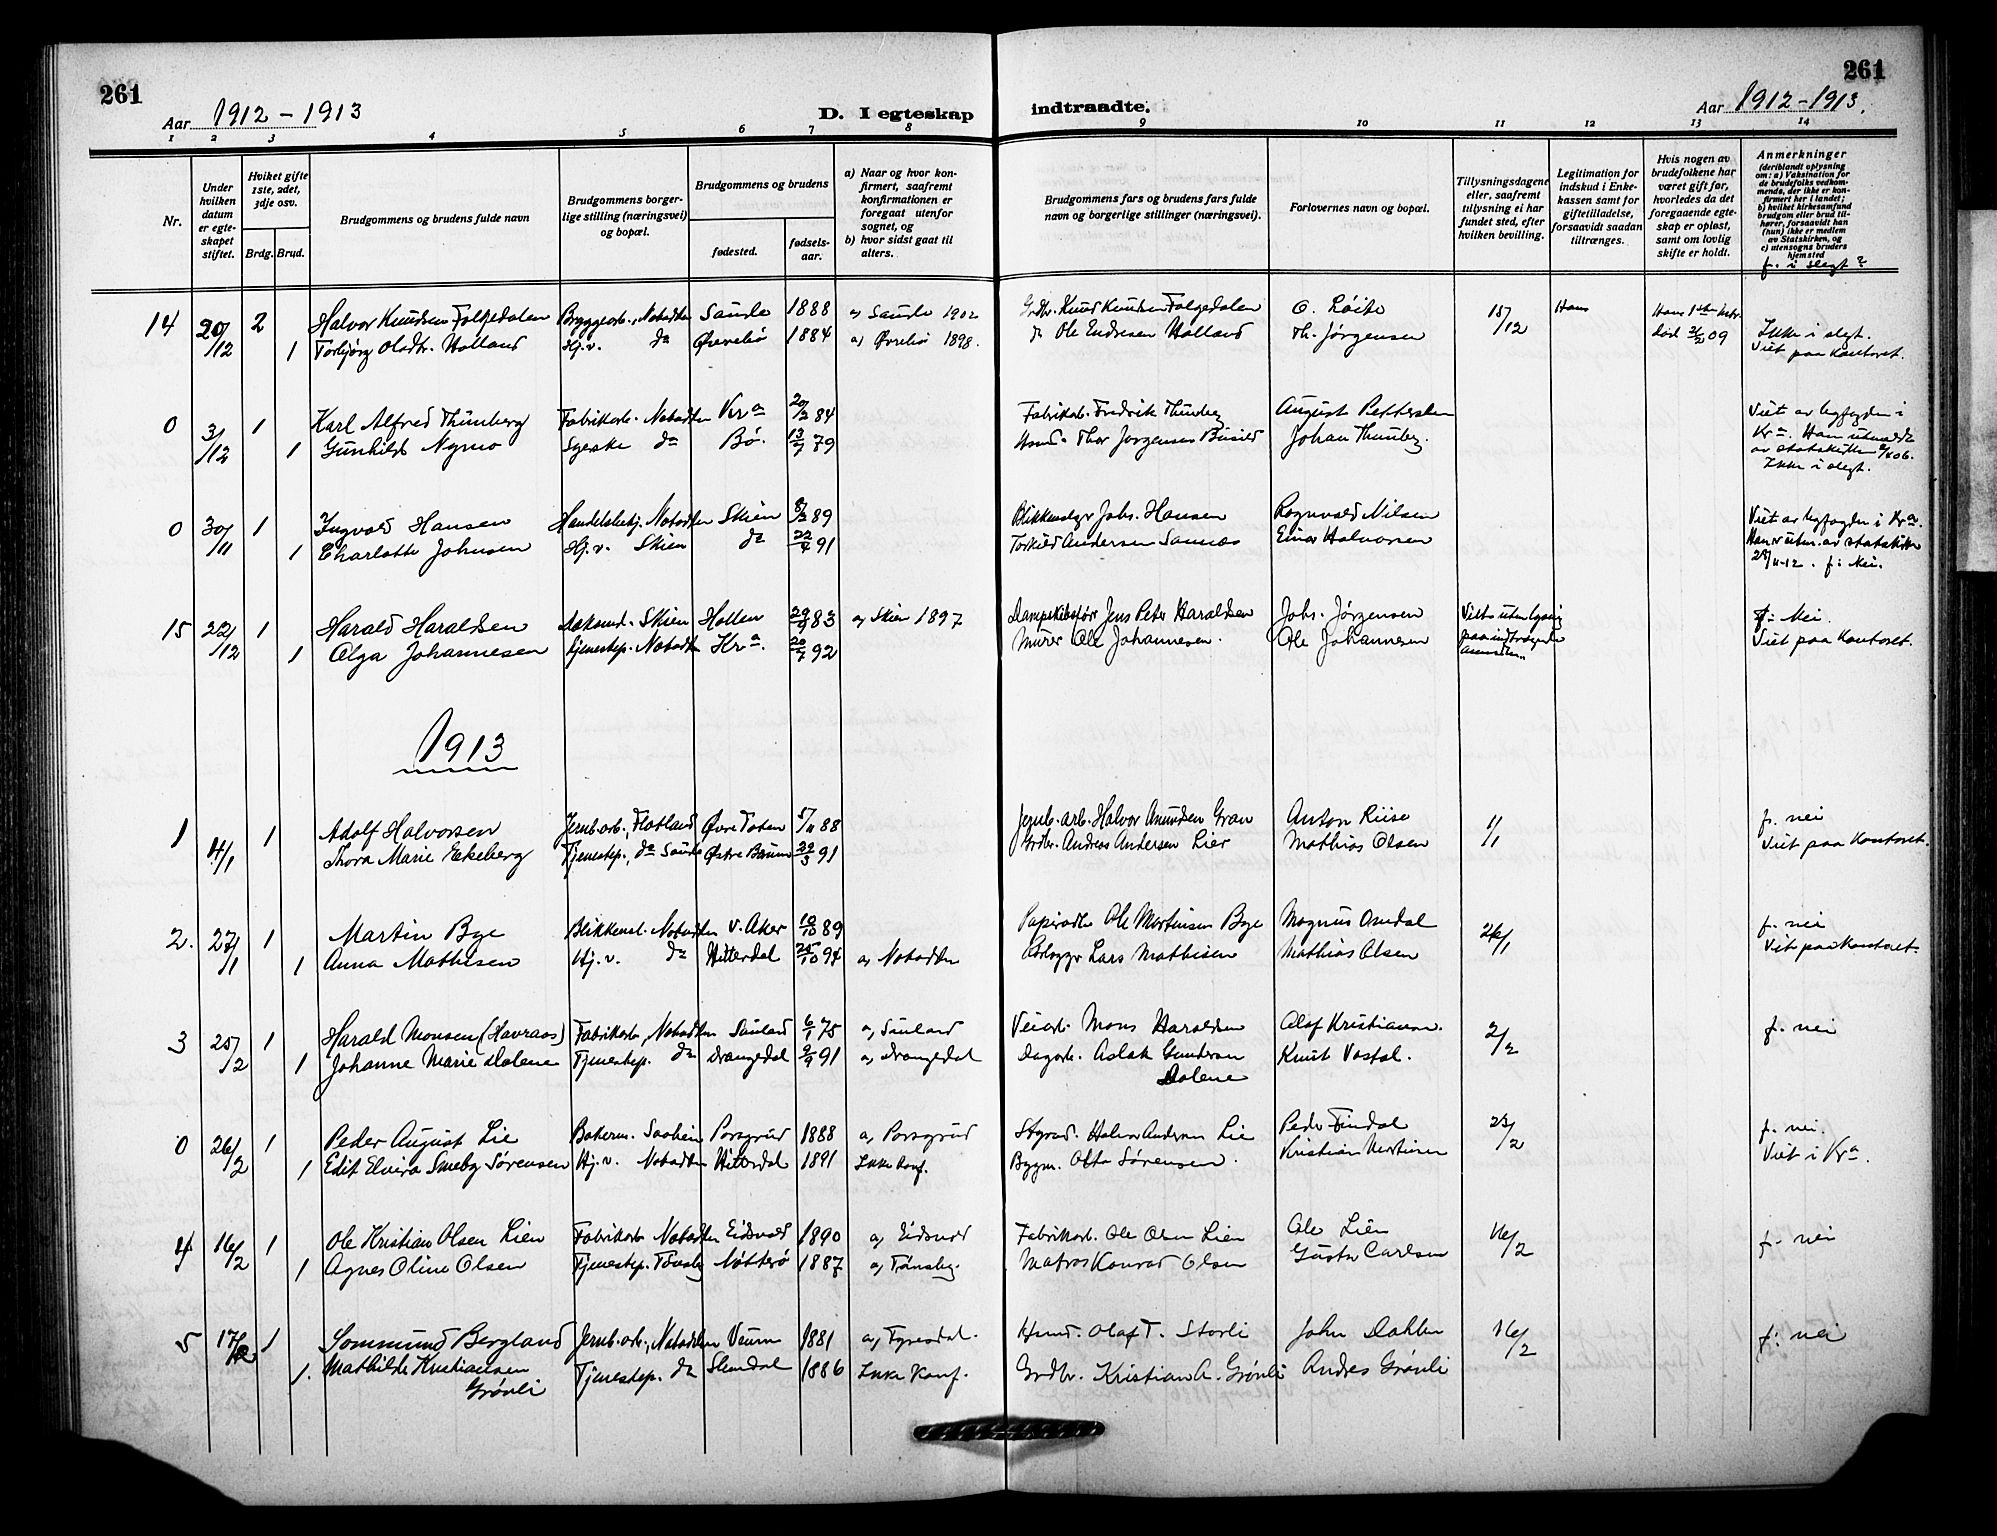 261
261
Aar 1912-1913
D. I egteskap indtraadte.
Aar 1912-1913.
1 2 3 4 5 6 7 8 9 10 11 12 13 14
Nr.
Under hvilken datum er egteskapet stiftet.
Hviket gifte 1ste, 2det, 3dje osv.
Brdg. Brud.
Brudgommens og brudens fulde navn
Brudgommens borgerlige stilling (næringsvei) og bopæl.
Brudgommens og brudens
fødested.
fødselsaar.
a) Naar og hvor konfirmert, saafremt konfirmationen er foregaat utenfor sognet, og
b) hvor sidst gaat til alters.
Brudgommens fars og brudens fars fulde navn og borgerlige stillinger (næringsvei).
Forlovernes navn og bopæl.
Tillysningsdagene eller, saafremt tillysning ei har fundet sted, efter hvilken bevilling.
Legitimation for indskud i Enkekassen samt for giftetilladelse, forsaavidt saadan tiltrænges.
Hvis nogen av brudefolkene har været gift før, hvorledes da det foregaaende egteskap er opløst, samt om lovlig skifte er holdt.
Anmerkninger (deriblandt oplysning om: a) Vaksination for de brudefolks vedkommende, der ikke er konfirmert her i landet; b) hvilket kirkesamfund brudgom eller brud tilhører, forsaavidt han (hun) ikke er medlem av Statskirken, og c) utensogns bruders hjemsted
f. i slegt?
14 20/12 2 Halvor Knudsen Folkedalen Bryggearb., Notodden Saude 1888 a) Saude 1902 Grdbr. Knud Knudsen Folgedalen O. Löite 15/12 Hans Hans 1ste død 09 Ikke i slegt.
1 Torbjørg Olsdtr. Holland Hj.v. do Øvrebø 1884 a) Øvrebø 1898. do Ole Endresen Holland Th. Jørgensen Viet paa Kontoret.
0 3/12 1 Karl Alfred Thunberg Fabrikarb. Notodden Kra 20/2 84 Fabrikarb. Fredrik Thunberg August Pettersen Viet av byfogden i
1 Gunhild Nymo Syerske do Bø. 13/7 79 Thor Jørgensen Johan Thunberg. Kra. Han utmeldt av statskirken
Ikke i slegt.
0 30/11 1 Ingvald Hansen Handelsbetj. Notodden Skien 8/2 89 Blikkenslgr Johs. Hansen Rognvald Nilsen Viet av byfogden i Kra.
1 Charlotte Johnsen Hj.v. Skien do 22/4 91 Torkild Andersen Sannæs Einar Halvorsen Han er utm. av statskirken
28/11-12. f: Nei.
15 22/12 1 Harald Haraldsen Skien Hollen 29/9 83 a) Skien 1897 Dampskibsfører Jens Peter Haraldsen Johs. Jørgensen f: Nei.
1 Olga Johannesen Tjenestep. Notodden Kra. 20/7 92 Murer Ole Johannesen. Ole Johannesen Viet paa Kontoret.
1913
1 14/1 1 Adolf Halvorsen Jernb.arb., Flotland Øvre Toten 5/11 88 Jernb. arb. Halvor Amundsen Gran Anton Riise 1/1 f. nei
Thora Marie Ekeberg Tjenestep., do Saude Østre Bærum 29/3 91 Grdbr. Andreas Andersen Lier Mathias Olsen Viet paa Kontoret.
2. 27/1 1 Martin Bye Blikkensl. Notodden V. Aker 10/10 89 Ole Martinsen Bye Magnus Omdal 26/1 f. nei
1 Anna Mathisen Hj.v. do Hitterdal 25/10 94 a) Notodden Lars Mathisen Mathias Olsen Viet paa Kontoret.
3 25/2 1 Harald Monsen (Havraas) Fabrikarb. Notodden Sauland 6/1 75 a) Sauland Veiarb. Mons Haraldsen Olaf Kristiansen. 2/2 f. nei
1 Johanne Marie Dolene Tjenestep. do Drangedal 2/9 91 a) Drangedal Dagarb. Aslak Gundersen Knut Vostal.
Dolene
0 26/2 1 Peder August Lie Bakerm. Saaheim Porsgrund 1888 a) Porsgrund Halvor Andersen Lie Peder Findal 23/2 f. nei.
1 Edit Elvira Smeby Sørensen Hj.v. Notodden Hitterdal 1891 Ikke konf. Bygm. Otto Sørensen. Kristian Mortinsen Viet i Kra.
4 16/2 1 Ole Kristian Olsen Lien Fabrikarb. Notodden Eidsvold 1890 a) Eidsvold Fabrikarb. Ole Olsen Lien Ole Lien 16/2 f. nei
1 Agnes Oline Olsen Tjenestep. Tønsbg Nötterö 1887 a) Tönsbg. Matros Konrad Olsen Gustav Carlsen
5 17/2 1 Sommund Bergland Jernb.arb., Notodden Veum 1881 a) Fyresdal. Husmd. Olaf T. Storli John Dahlen 16/2 f: nei
1. Mathilde Kristiansen Tjenestep. do Slemdal 1886 Ikke Konf. Grdbr. Kristian A. Grönli Andres Grönli
Grönli